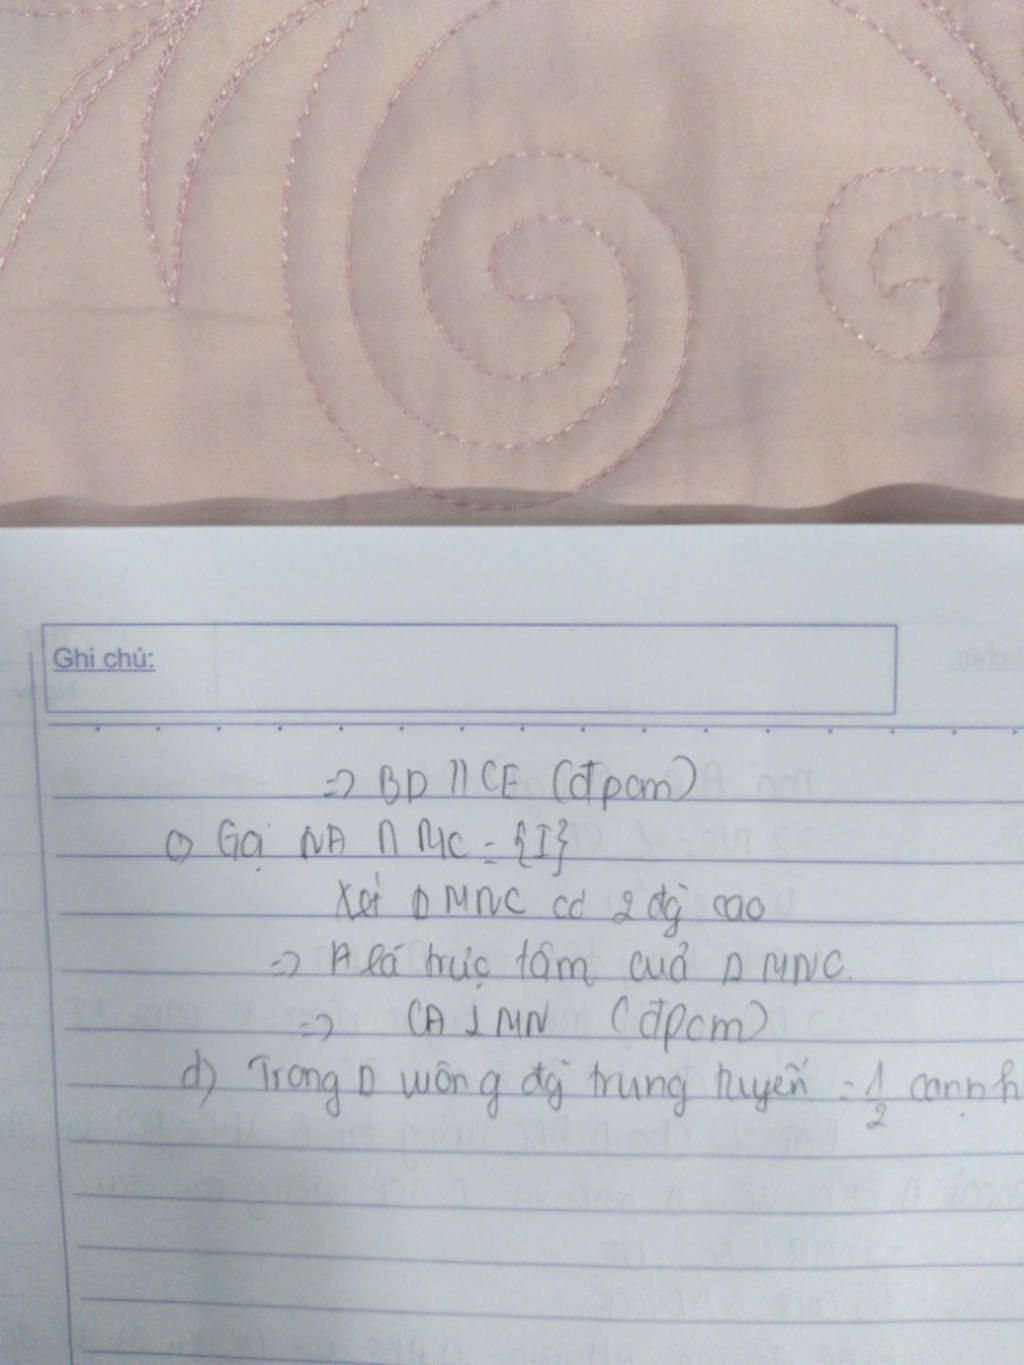 Ghi chú:
=> BD // CE (đpcm)
c) Gọi NA ∩ MC = {I}
Xét Δ MNC có 2 đg cao
=> A là trực tâm cuả Δ MNC.
=> CA ⊥ MN (đpcm)
d) Trong Δ vuông đg trung tuyến = 1/2 cannh